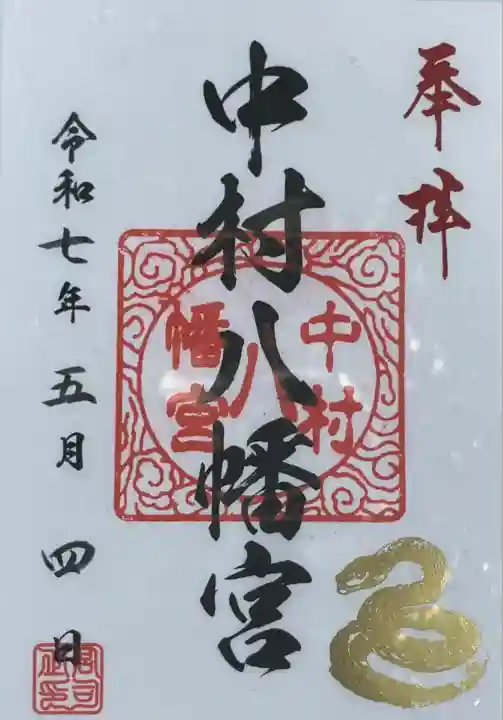 奉拝
中村八幡宮
中村
八
幡宮
令和七年五月四日
宮司
之印